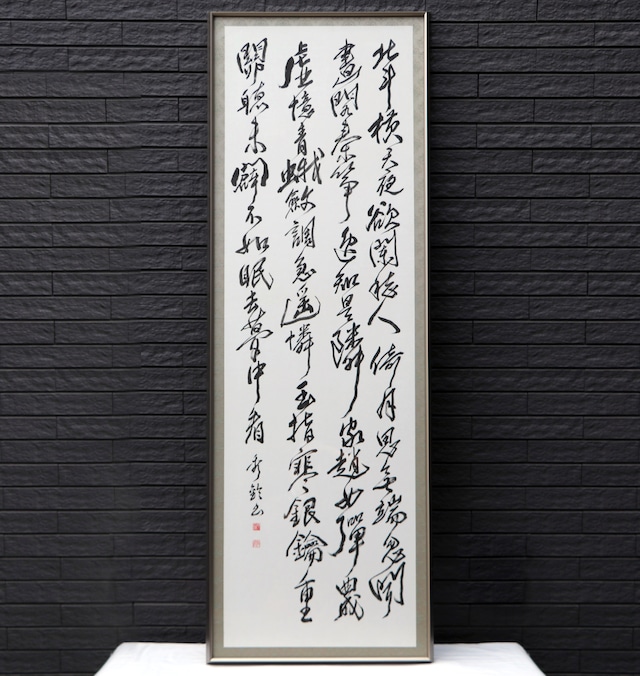 北斗横天夜欲闌愁人倚月思無端忽聞
畫閣秦箏逸知是隣家趙女彈曲成
虚憶青蛾斂調急遥憐玉指寒銀鑰重
關聴未闢不如眠去夢中看